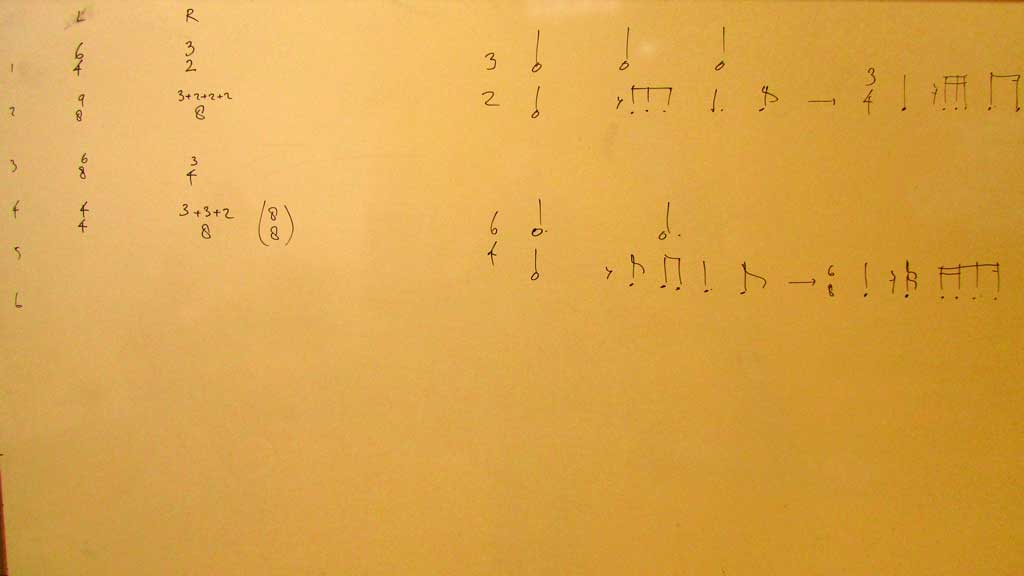 L R
1 6 3
4 2
2 9 3+2+2+2
8 8
3 6 3
8 4
4 4 3+3+2 (8
4 8 8)
5
6
3
2 → 3
4
6
4 → 6
8